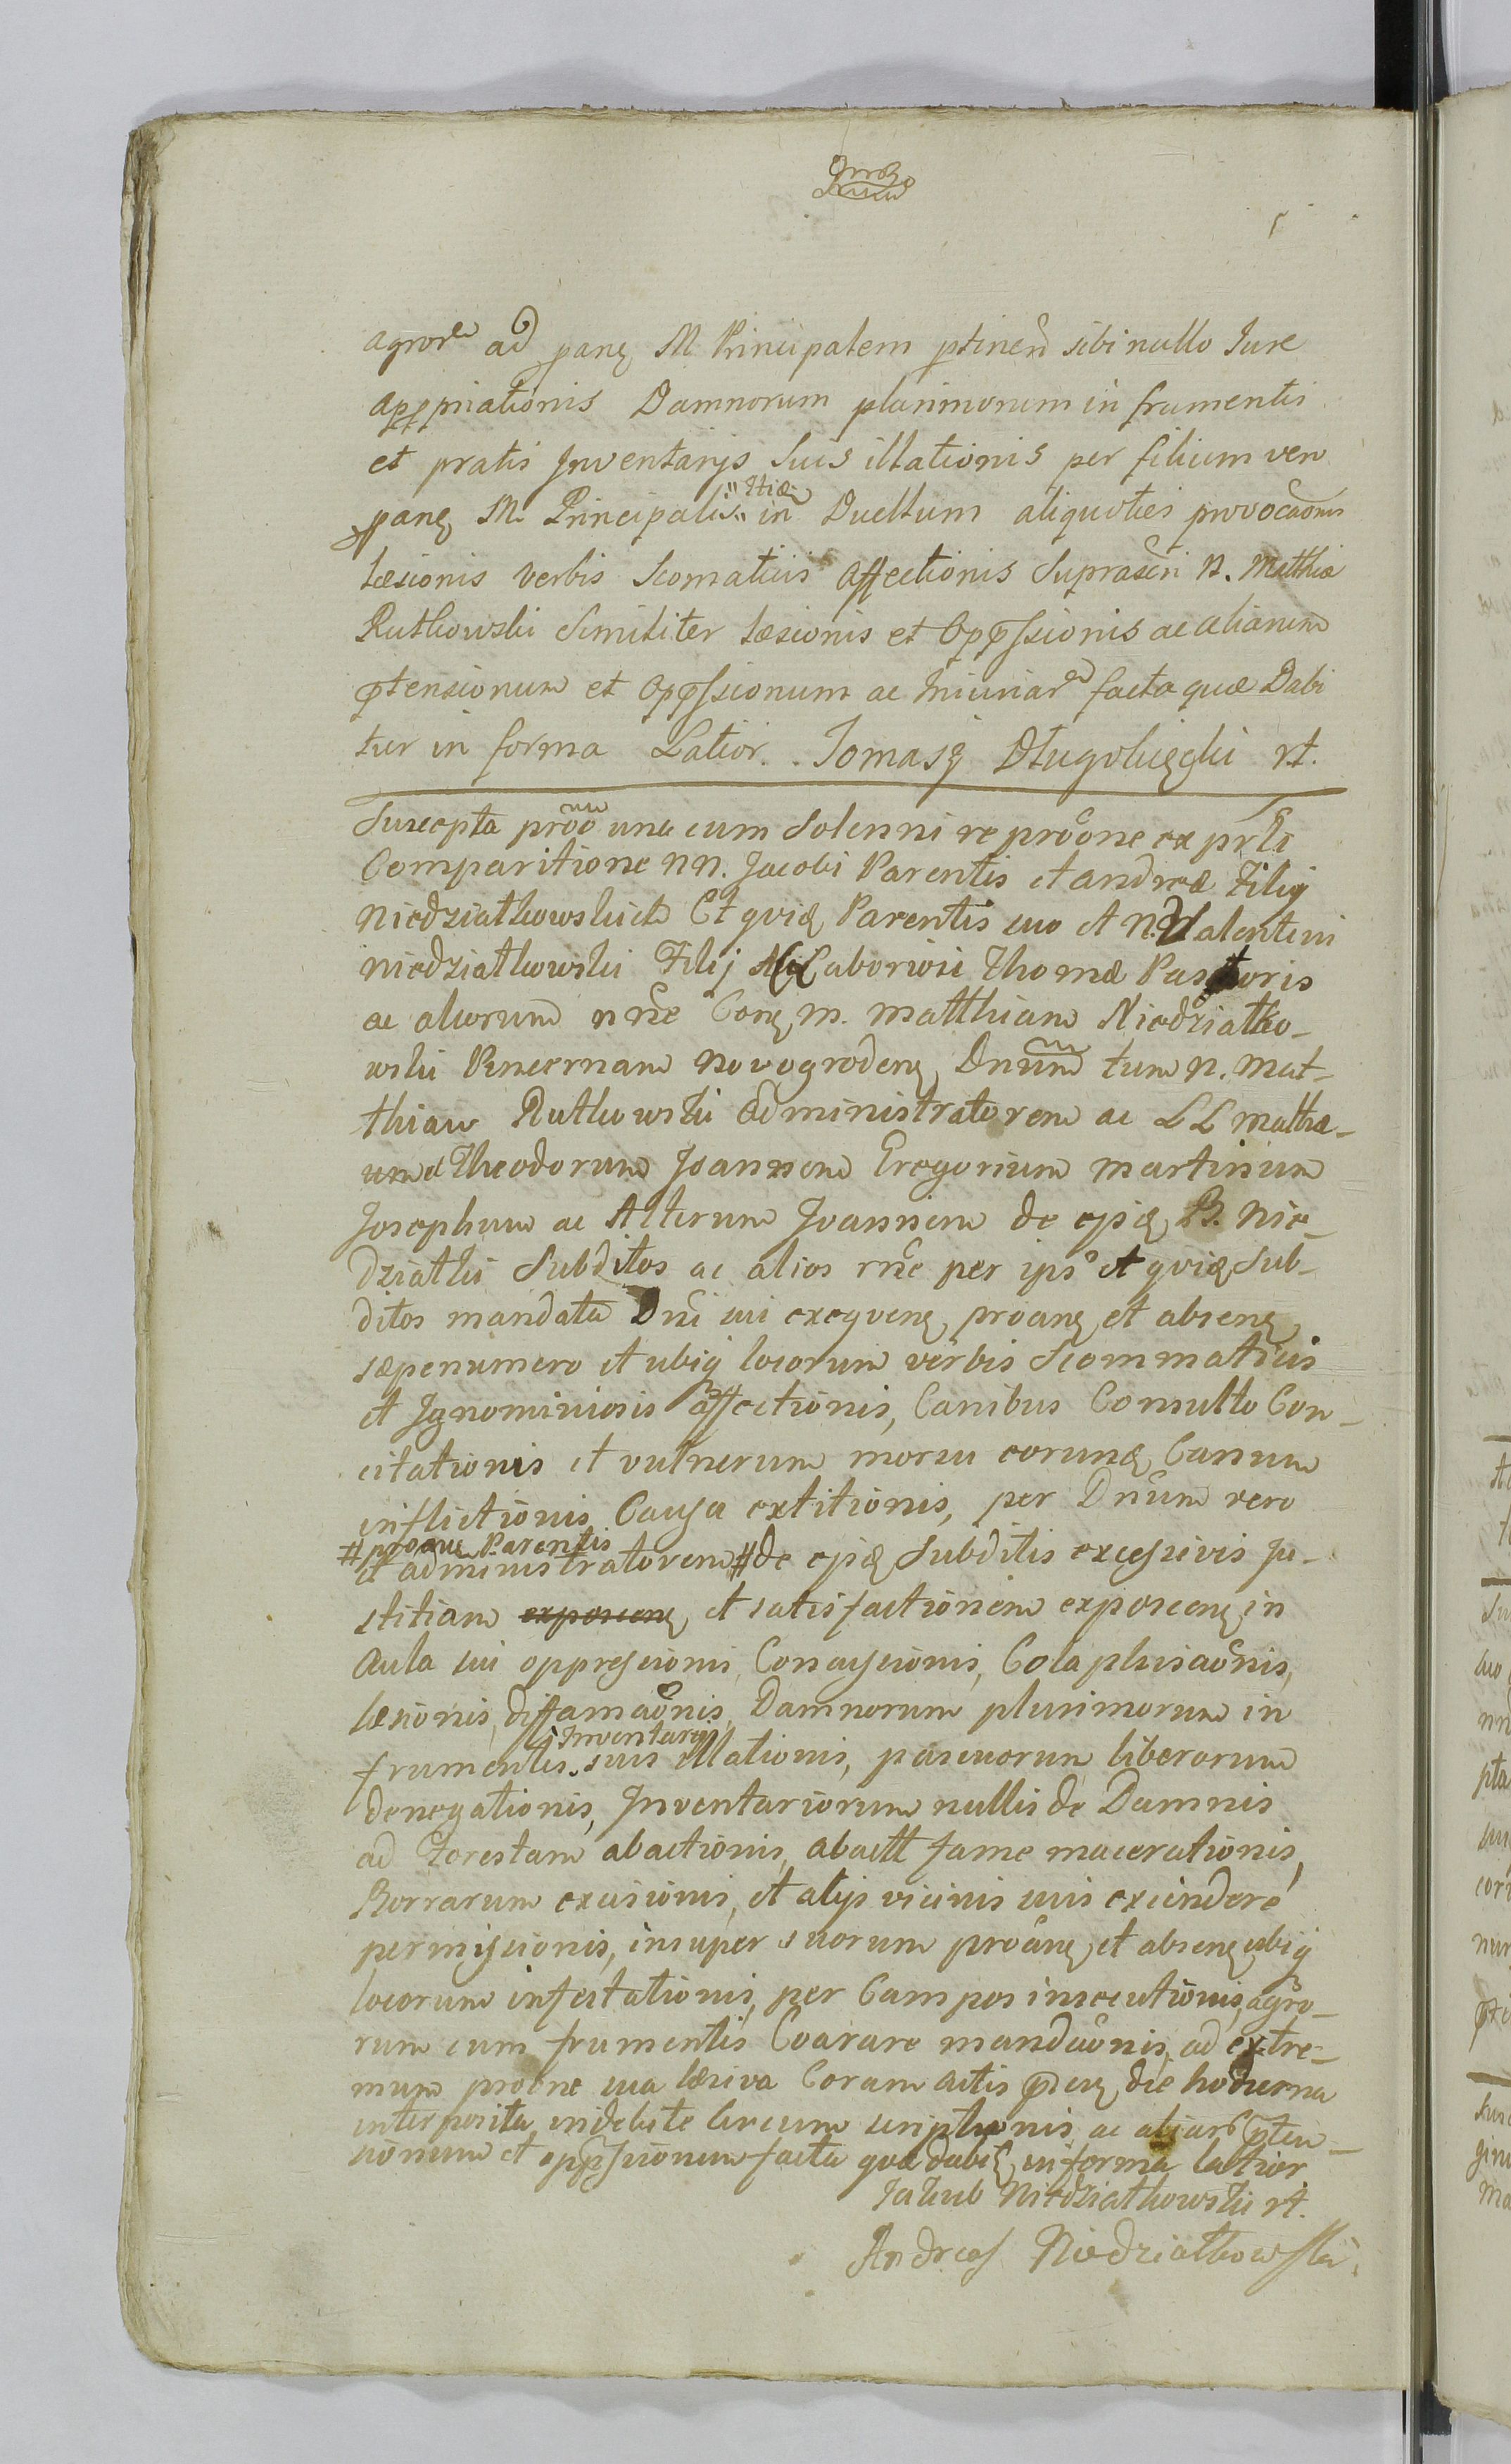 agror ad parē M Principalem ptinen̄ sibi nullo Jure
appriationis Damnorum plurimorum in frumentis
et pratis Inventarijs suis illationis per filium vero
parē M. Principalis in Duellum aliquoties provocaōnis
læsionis verbis Scomaticis affectionis Suprascri N. Matthiæ
Rutkowski Similiter læsionis et Oppssionis ac aliarum
ptensionum et Oppssionum ac Iniuriar facta quæ Dabi
tur in forma Latior. Tomasz Długołięcki rt.
Suscepta proōne una cum Solenni reproōne ex prli
Comparitione NN. Jacobi Parentis et andreæ Filij
Niedziałkowskich Et qviē Parentis suo et N. Valentini
Niedziałkowski Filij Laboriosi Thomæ Pastoris
ac aliorum nrīe Conē M. Matthiam Niedziałko-
wski Pincernam Novogrodenē Dnum tum N. Mat-
thiam Rutkowski administratorem ac LL Matthæ-
um et Theodorum Joannem Gregorium Martinum
Josephum ac Alterum Joannem de epiē B. Nie-
działki Subditos ac alios rne per ips et qviē Sub-
ditos mandata Dni sui exeqvenē proanē et absenē
sæpenumero et ubiq locorum verbis Scommaticis
et Ignominiosis affectionis, Canibus Consulto Con-
citationis et vulnerum morsu eorunē Canum
inflictionis Causa extitionis, per Dnum vero
# proanē Parentis
et administratorem # de epiē Subditis excessivis Ju-
stitiam exposcenē et satisfactionem exposcenē in
Aula sui oppressionis, Concussionis, Colaphisaōnis,
læsionis, diffamaōnis, Damnorum plurimorum in
Inventarijs
frumentis suis illationis, pascuorum liberorum
denegationis, Inventariorum nullis de Damnis
ad Forestam abactionis, abactt fame macerationis,
Borrarum excisionis, et alijs vicinis suis excindere
permissionis, insuper suorum proanē et absenē ubiq
locorum infestationis, per Campos insecutionis, agro-
rum cum frumentis Coarare mandaōnis, ad extre-
mum proōne sua læsiva Coram actis pn̄ē die hodierna
interposita indebite circumscriptionis ac aliar pten-
sionum et oppssionum facta quæ dabiē in forma latior
Jakub Niedziałkowski rt.
Andrzej Niedziałkowski.